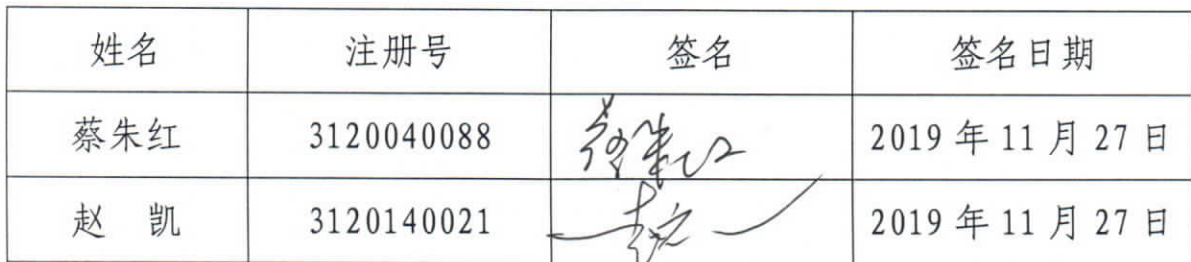 姓名 注册号 签名 签名日期
蔡朱红 3120040088 蔡朱红 2019年11月27日
赵 凯 3120140021 2019年11月27日